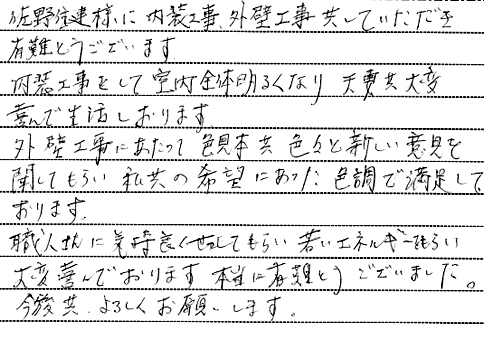 佐野住建様に内装工事、外壁工事共していただき
有難とうございます
内装工事をして室内全体明るくなり夫妻共大変
喜んで生活しおります
外壁工事にあたって色見本共色々と新しい意見を
聞してもらい私共の希望にあった色調で満足して
おります。
職人さんに気持良くせしてもらい若いエネルギーももらい
大変喜んでおります本当に有難とうございました。
今後共、よろしくお願いします。